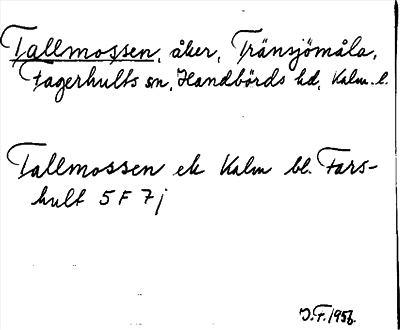 Tallmossen, åker, Tränsjömåla,
Fagerhults sn, Handbörds hd, Kalm. l.
Tallmossen ek Kalm bl. Fars-
hult 5 F 7 j
J.F. 1956.